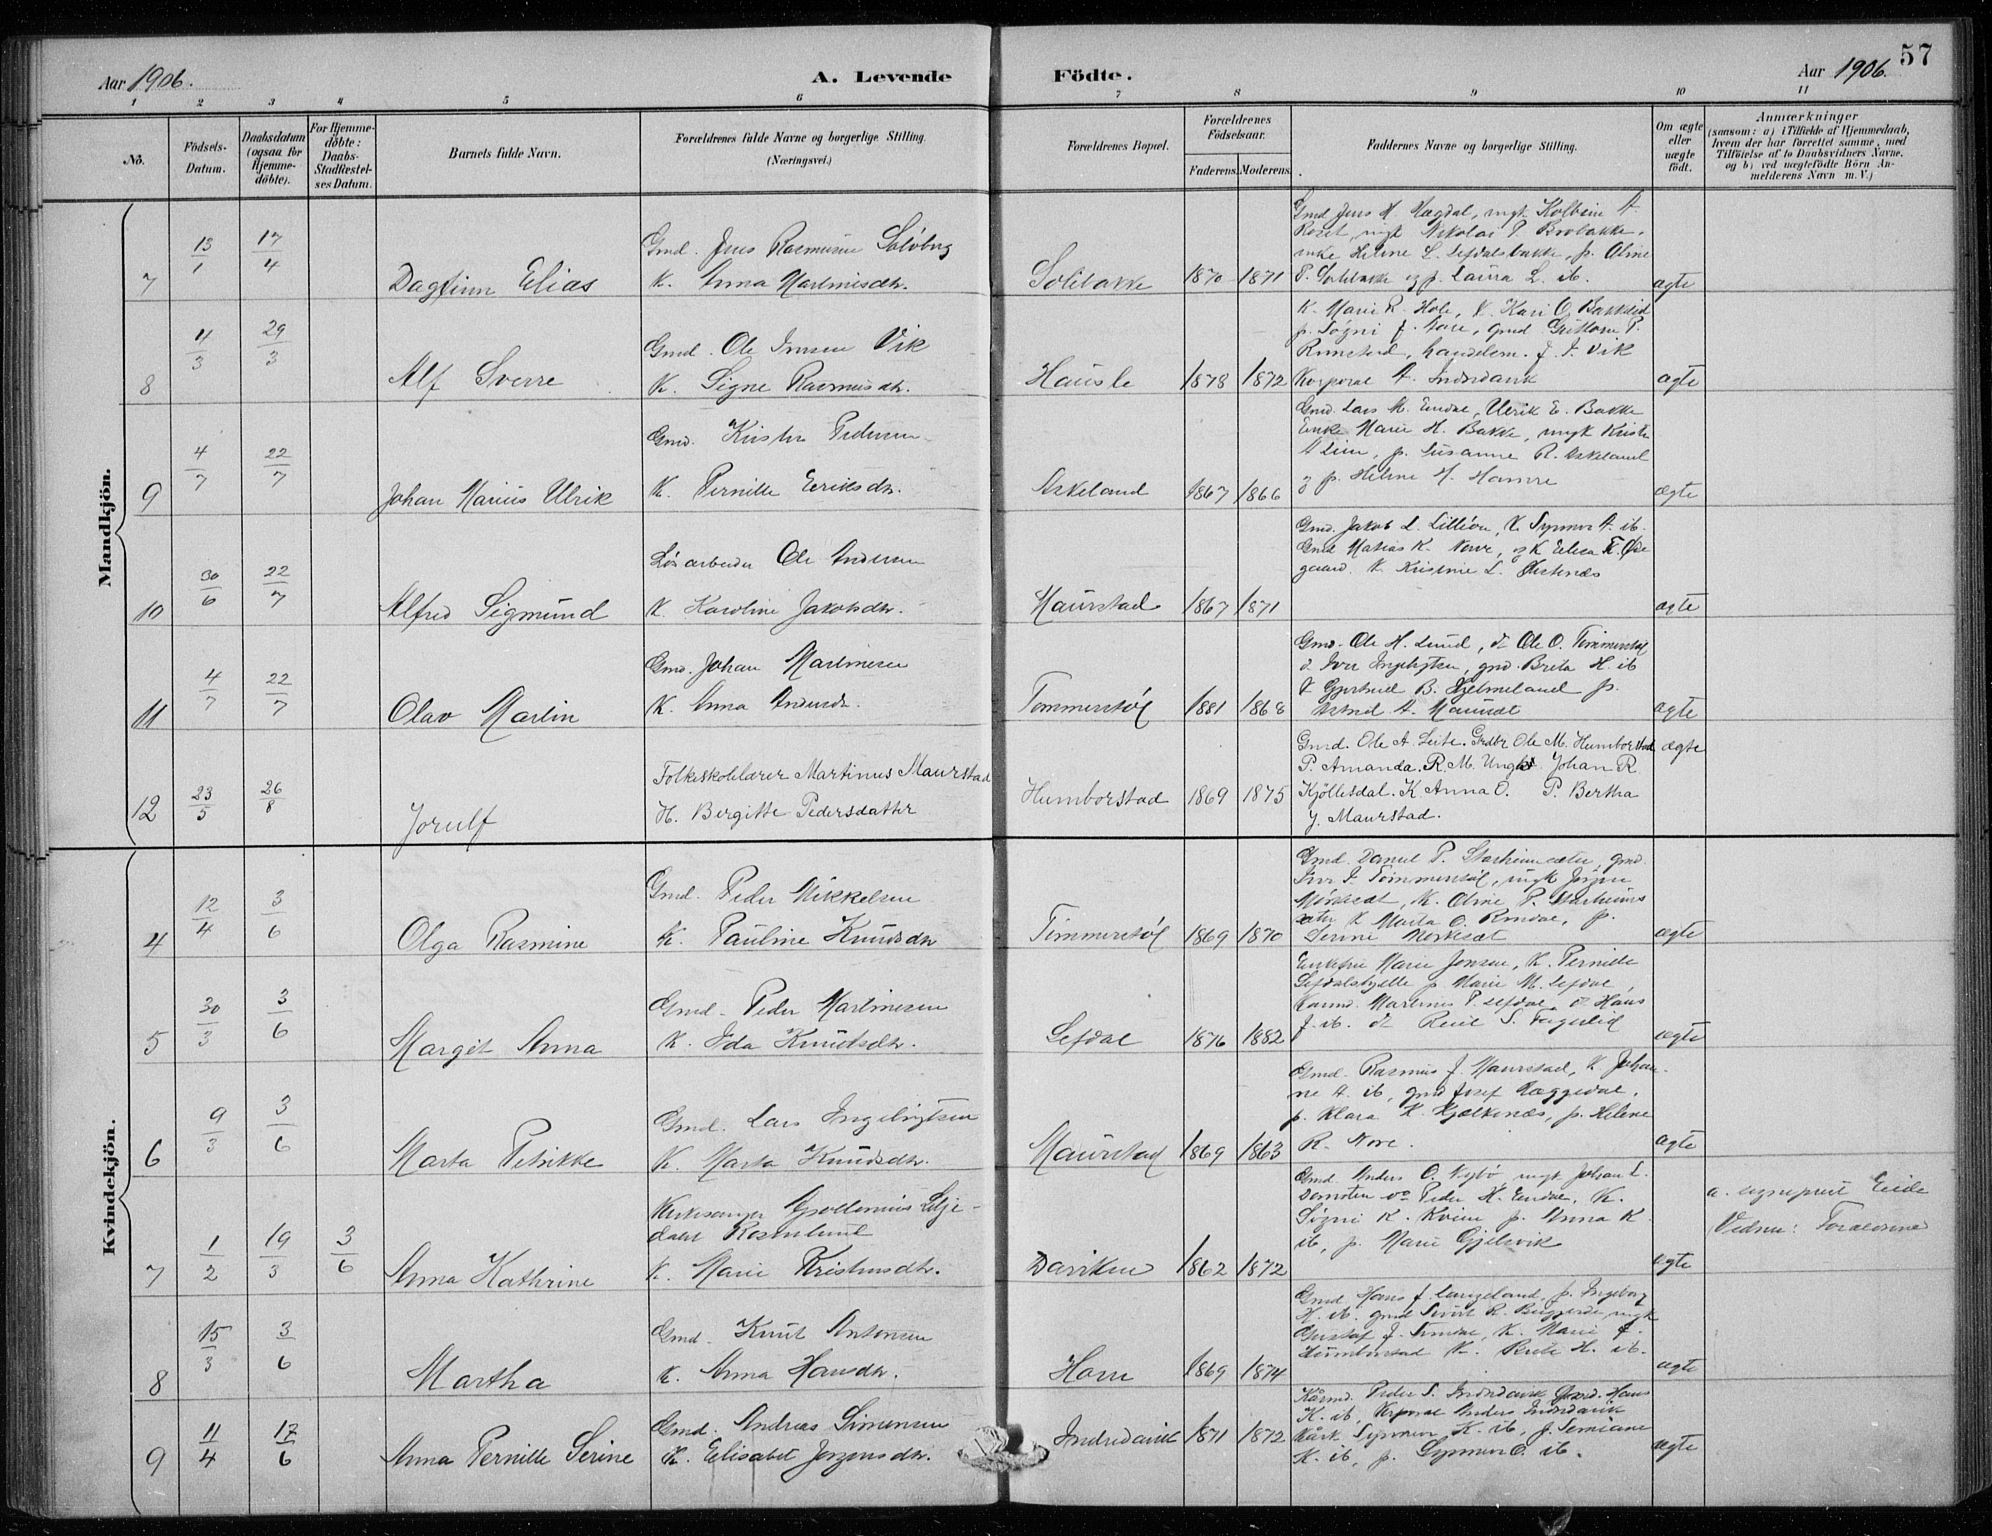 57
Aar 1906.
A. Levende Födte.
Aar 1906.
1 2 3 4 5 6 7 8 9 10 11
No.
Födsels-Datum.
Daabsdatum (ogsaa for Hjemme-döbte).
For Hjemme-döbte: Daabs-Stadfæstel-ses Datum.
Barnets fulde Navn.
Forældrenes fulde Navne og borgerlige Stilling. (Næringsvei.)
Forældrenes Bopæl.
Forældrenes Födselsaar.
Faderens. Moderens.
Faddernes Navne og borgerlige Stilling.
Om ægte eller uægte födt.
Anmærkninger
(saasom: a) i Tilfælde af Hjemmedaab, hvem der har forrettet samme, med Tilföielse af to Daabsvidners Navne, og b) ved uægtefödte Börn An-melderens Navn m. V.)
Mandkjön.
7 13/1 17/4 Dagfinn Elias
Gmd. Jens Rasmusen
K. Anna Martinisdtr.
Solibakke 1870 1871
Gmd Jens H. Hagdal, ungk Kolbein A.
Roset, ungk Nikolai P. Brobakke,
enke Helene L. Sefdalsbakke, p. Oline
P. Solibakke og p. Laura L. ib.
ægte
8 4/3 29/3 Alf Sverre
Gmd. Ole Vik
K. Signe Rasmusdtr.
Hausle 1878 1872
K. Marie R. Hole, K. Kari O. Bakkelid
p. Søgni J. Nore, gmd
handelsm. J. J. Vik
Korporal A. Indredavik
ægte
9 4/7 22/7 Johan Marius Ulrik
Gmd. Kristen Pedersen
K. Pernille Eriksdtr.
Askeland 1867 1866
Gmd. Lars M. Endal, Ulrik E. Bakke
Enke Marie H. Bakke, ungk Kristen
p. Susanne R. Askeland
og p. Heline H. Hamre
ægte
10 30/6 22/7 Alfred Sigmund
Løsarbeider Ole Andersen
K. Karoline Jakobsdtr.
Maurstad 1867 1871
Gmd. Jakob L. Lilleøen, K. Synnøv A. ib.
Gmd Matias K. Nore, og K. Elisa K. Øde
gaard. K. Kristine L.
ægte
11 4/7 22/7 Olav Martin
Gmd. Johan Martinesen
K. Anna Andersdtr.
Tommerstøl 1881 1868
Gmd. Ole H. Lund, do Ole O. Tømmerstøl
do Iver Ingebrigtsen, gmd. Breta H. ib
K Gjertrud B. Hjelmeland p.
Astrid A. Maurset
ægte
12 23/5 26/8 Jorulf
Folkeskolelærer Martinus Maurstad
H. Bergitte Pedersdatter
Humborstad 1869 1875
Gmd. Ole A. Leite. Grdbr Ole M. Humborstad
P. Amanda. R. M. Ungk. Johan R.
Kjöllesdal. K. Anna O. P. Bertha
J. Maurstad.
ægte
Kvindekjön.
4 12/4 3/6 Olga Rasmine
Gmd. Peder Mikkelsen
K. Pauline Knudsdtr
Tømmerstøl 1869 1870
Gmd. Daniel P. Starheimsæter, gmd.
Iver J. Tømmerstøl, ungk Jørgen
Mørkesæt, K. Oline P. Starheims
sæter K Marta O. Rindal, p.
Serine Mørkesæt
ægte
5 30/3 3/6 Margit Anna
Gmd. Peder Martinesen
K. Ida Knudsdtr.
Sefdal 1876 1882
Enkefru Marie Jensen, K. Pernille
Sefdalshjelle p. Marie M. Sefdal,
Kaarmd. Martines P. Sefdal, do Hans
J. ib. do S. Fagerlid
ægte
6 9/3 3/6 Marta Petrikke
Gmd. Lars Ingebrigtsen
K. Marta Knudsdtr.
Maurstad 1869 1863
Gmd. Rasmus J. Maurstad, K. Johan-
ne A. ib, gmd Josef Hæggedal,
p. Klara K. Hjelkenæs, p. Helene
R. Nore.
ægte
7 1/2 19/3 3/6 Anna Kathrine
Kirkesanger Apollonius Lilje-
dahl Rosenlund
K. Marie Kristensdtr.
Daviken 1862 1872
Gmd Anders O. Nybø, ungk Johan L.
Domsten og Peder H. Endal, K.
Søgni K. Kvien p. Anna K.
ib, p. Marie Gjelsvik
ægte
a. sogneprest Eide
Vidner: Forældrene
8 15/3 3/6 Martha
Gmd. Knut Antonsen
K. Anna Hansdtr.
Horn 1869 1874
Gmd Hans J. Langeland, p. Ingeborg
H. ib. gmd Sivert R. ungk
Gustaf J. K. Marie J.
Humborstad K. H. ib.
ægte
9 11/4 17/6 Anna Pernille Serine
Gmd. Andreas Simonsen
K. Elisabet Jørgensdtr.
Indredavik 1871 1872
Kårmd. Peder S. Indredavik Gmd. Hans
K. ib, Korporal Anders Indredavik
Kårk Synnøve K. ib, J. Semiane
K. ib, p. Synnøve O. ib.
ægte